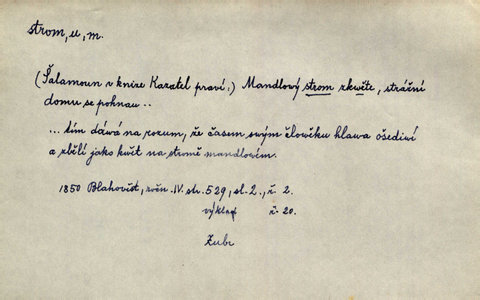 strom, u, m.
(Šalamoun v knize Kazatel praví:) Mandlový strom zkwěte, strážní
domu se pohnau..
... tím dáwá na rozum, že časem swým člowěku hlawa ošediwí
a zbělí jako kwět na stromě mandlowém.
1850 Blahověst, ročn. IV. str. 529, sl. 2., ř. 2.
výklad ř. 20.
Zubr